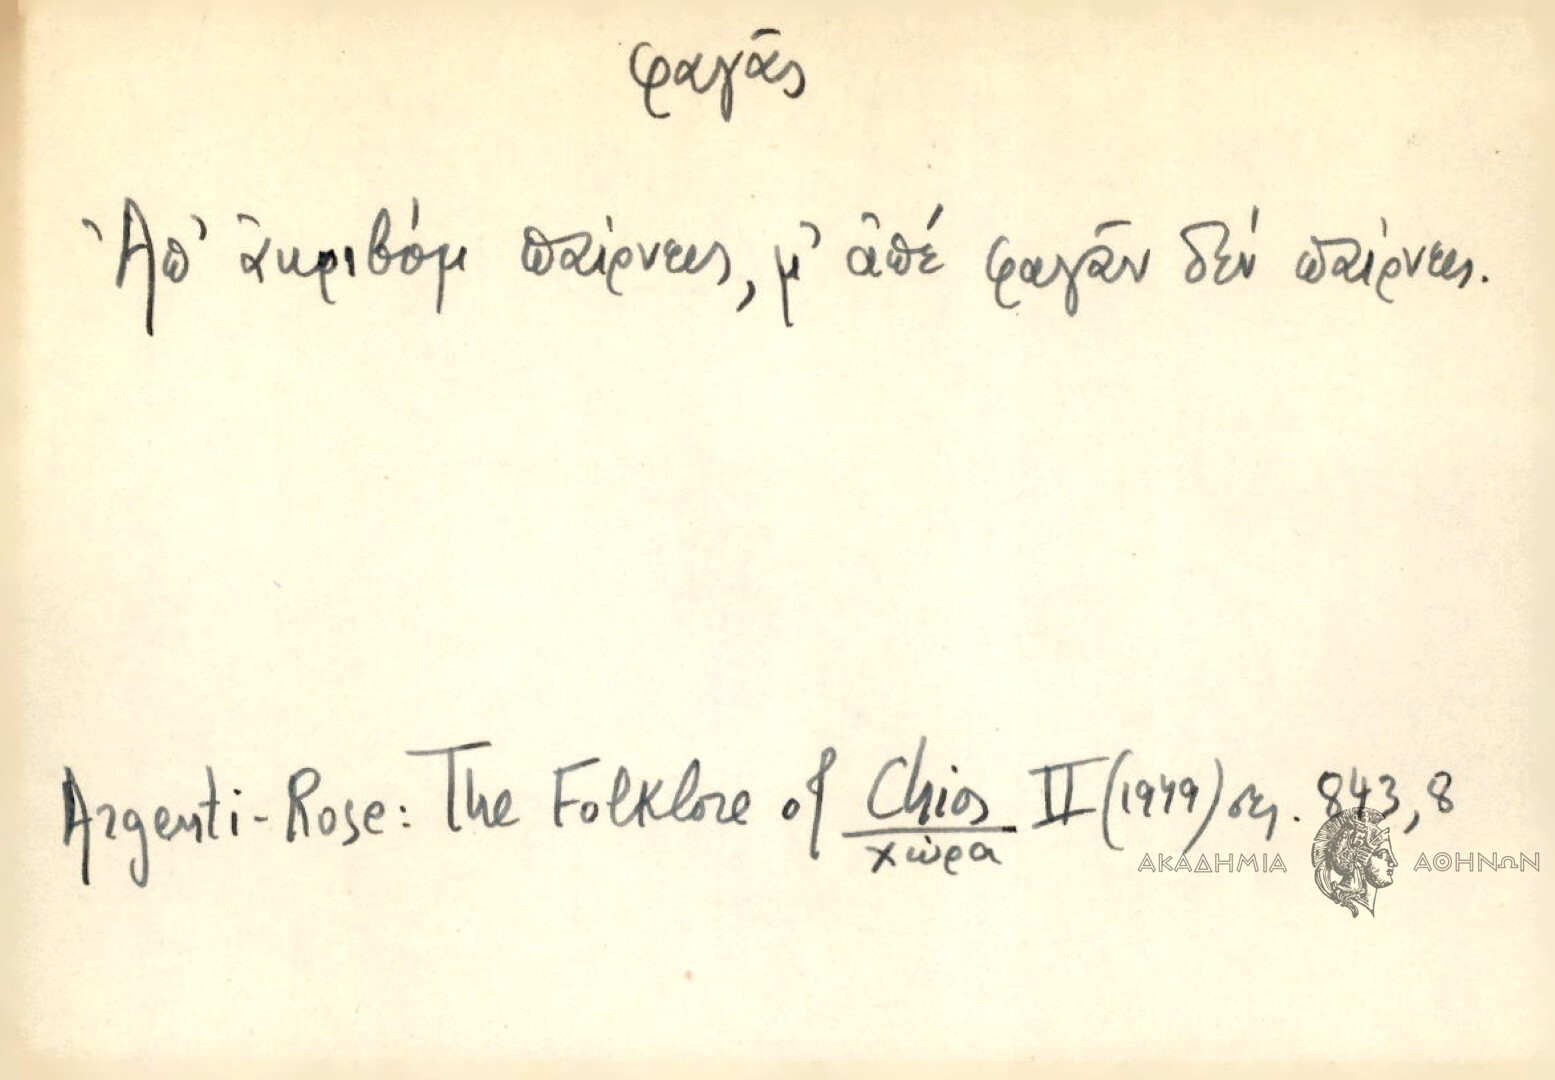 φαγᾶς
Ἀπ' ἀκριβόμ παίρνεις, μ' ἀπέ φαγᾶν δέν παίρνεις.
Argenti-Rose: The Folklore of Chios II (1949) σελ. 843,8
χώρα
ΑΚΑΔΗΜΙΑ ΑΘΗΝΩΝ